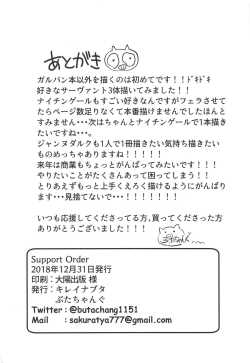 あとがき
ガルパン本以外を描くのは初めてです！！ドキドキ
好きなサーヴァント3体描いてみました！！
ナイチンゲールもすごい好きなんですがフェラさせて
たらページ数足りなくて本番描けませんでしたほんと
すみません・・・次はちゃんとナイチンゲールで1本描き
たいですね・・・。
ジャンヌダルクも1人で1冊描きたい気持ち描きたい
ものめっちゃありますね！！！！！
来年は商業もちょっとがんばってみたいです！！！
やりたいことがたくさんあって困ってしまう！！
とりあえずもっと上手くえろく描けるようにがんばり
ます・・・見捨てないで・・・！！！！
いつも応援してくださってる方、買ってくださった方
ありがとうございました！！！
Support Order
2018年12月31日発行
印刷：大陽出版 様
発行：キレイナブタ
ぶたちゃんぐ
Twitter：@butachang1151
Mail　：sakuratya777@gmail.com